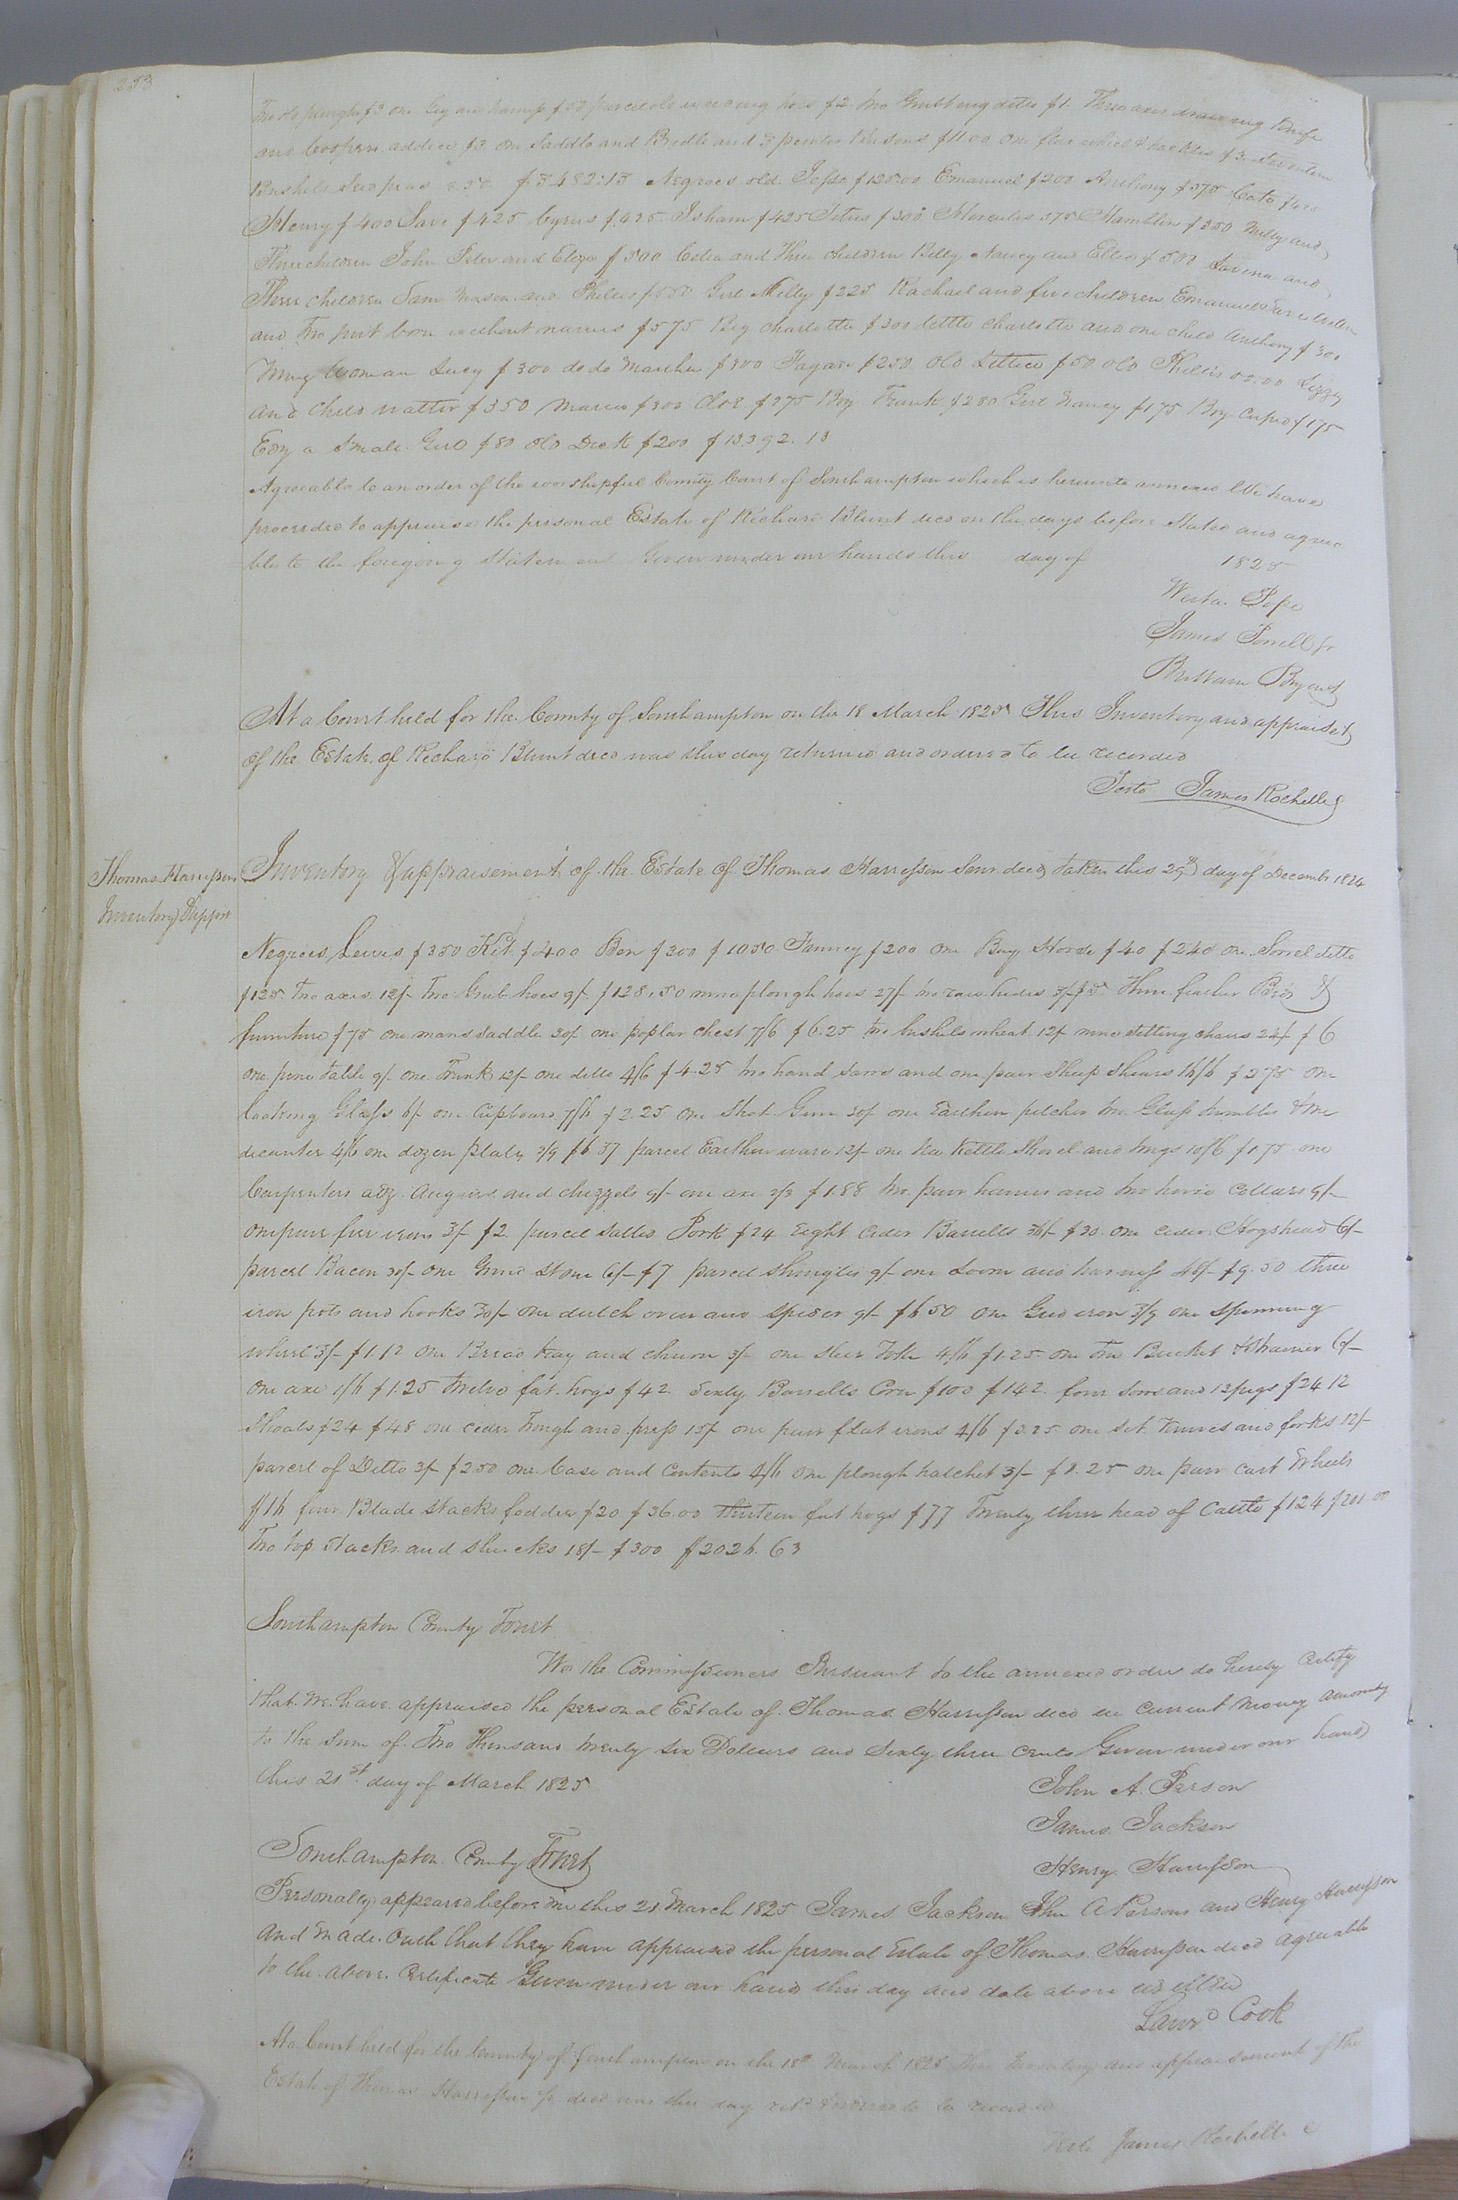 253
Two do ploughs $3 one Gig and harness $50 parcel old weeding hoes $2 two Grubbing ditto $1. Three axes drawing Knife
and Coopers addice $3 one Saddle and Bridle and 3 pewter Basons $11.00 one flax wheel & hackles $3 Seventeen
Bushels peas $3482:13 Negroes old Jesse $125.00 Emanuel $200 Anthony $375 Cato $400
Henry $400 Sam $425 Cyrus $425 Isham $425 Titus $300 Hercules 375 Hamblin $350 Milly and
Three children John Peter and Eliza $500 Celia and Three children Billy Nancy and $500 and
Three children Sam Mason and Phillis $550 Girl Milly $225 Rachael and five children Emanuel
and Two just born without names $575 Big Charlotte $300 little Charlotte and one child Anthony $300
Young Woman Lucy $300 do do Martha $300 Hagar $250 Old Lettice $50 old Phillis 00.00 Lizzy
and Child Walter $350 Maria $300 Cloe $275 Boy Frank $280 Girl Nancy $175 Boy Cupid $175
Edy a small Girl $80 Old Dick $200 $13392.13
Agreeable to an order of the worshipful County Court of Southampton which is hereunto annexed We have
proceeded to appraise the personal Estate of Richard Blunt decd on the days before stated and agreea
ble to the foregoing statement Given under our hands this day of 1825
Pope
James Powell Jr
Brittain Bryant
At a Court held for the County of Southampton on the 18 March 1825 This Inventory and appraiset
of the Estate of Richard Blunt decd was this day returned and ordered to be recorded
Teste James Rochelle
Thomas Harrisson
Inventory & appst
Inventory & appraisement of the Estate of Thomas Harrisson Senr decd taken this 29th day of Decembr 1824
Negroes Lewis $350 Kit $400 Ben $300 $1050 Fanney $200 One Bay Horse $40 $240 One Sorrel ditto
$125 two axes 12/- two Grub hoes 9/- $128.50 nine plough hoes 27/- two raw hides 3/- $5 Three feather Beds &
furniture $75 one mans saddle 30/- one poplar chest 7/6 $6.25 two bushels wheat 12/- nine setting chairs 24/- $6
one pine table 9/- one Trunk 12/- one ditto 4/6 $4.25 two hand saws and one pair Sheep shears 16/6 $275 one
looking Glass 6/- one Cupboard 7/6 $2.25 one Shot Gun 30/- one Earthen pitcher two Glass tumbler & one
decanter 4/6 one dozen plates 3/9 $6 37 parcel Earthen ware 12/- one Tea Kettle Shovel and tongs 10/6 $1.75 one
Carpenters adz Augurs and chizzels 9/- one axe 2/3 $1.88 two pair hames and two horse Collars 9/-
one pair fire irons 3/- $2 parcel salted Pork $24 Eight Cider Barrells 36/- $30 one cider Hogshead 6/-
parcel Bacon 30/- One Grind stone 6/- $7 parcel shingles 9/- one Loom and harness 48/- $9.50 three
iron pots and hooks 30/- one dutch oven and spider 9/- $6 50 one Gridiron 3/9 one spinning
wheel 3/- $1.12 one Bread tray and churn 3/- one 4/6 $1.25 one Tin Bucket & Strainer 6/-
one axe 1/6 $1.25 twelve fat hogs $42 Sixty Barrells Corn $100 $142 four sows and 12 pigs $24 12
Shoats $24 $48 one cider trough and press 15/- one pair flat irons 4/6 $3.25 one set Knives and forks 12/-
parcel of Ditto 3/- $2.50 one Case and Contents 4/6 one plough hatchet 3/- $1.25 one pair cart Wheels
$16 four Blade stacks fodder $20 $36.00 thirteen fat hogs $77 Twenty three head of Cattle $124 $201.00
two top stacks and shucks 18/- $300 $2026.63
Southampton County Towit
We the Commissioners Pursuant to the annexed order do hereby Certify
that We have appraised the personal Estate of Thomas Harrisson decd in current Money amountg
to the Sum of Two Thousand twenty six Dollars and Sixty three Cents Given under our hands
this 21st day of March 1825
John A. Person
James Jackson
Henry Harrisson
Southampton County Towit
Personally appeared before me this 21 March 1825 James Jackson Jhn A Persons and Henry Harrisson
and made Oath that they have appraised the personal Estate of Thomas Harrisson decd agreeable
to the above Certificate Given under our hand this day and date above written
Cook
At a Court held for the County of Southampton on the 18th March 1825 This Inventory and appraisement of the
Estate of Thomas Harrisson Sr decd was this day retd & ordered to be recorded
Teste James Rochelle